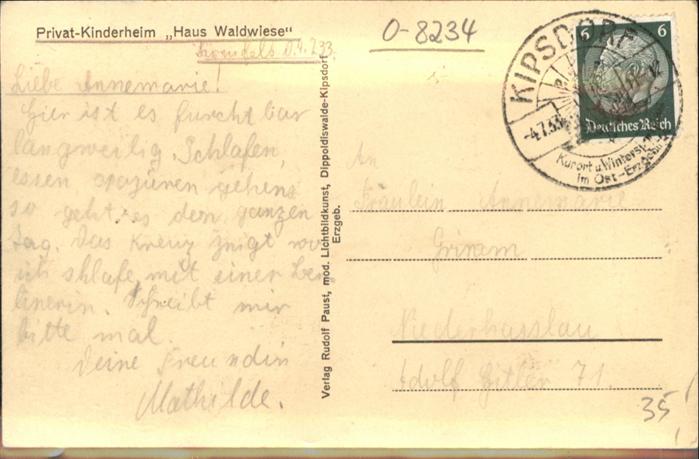 Privat-Kinderheim „Haus Waldwiese"
O-8234
Liebe Annemarie!
Hier ist es furchtbar
langweilig. Schlafen,
essen spazieren gehens
so geht es den ganzen
Tag. Das Kreuz zeigt wo
ich shlafe, mit einer Ber
linerin. Schreibt mir
bitte mal.
Deine Freundin
Mathilde.
Verlag Rudolf Paust, mod. Lichtbildkunst, Dippoldiswalde-Kipsdorf
Erzgeb.
KIPSDORF
-4.7.33
Kurort u. Wintersp
im Ost-Erzgebir
6 6
Deutsches Reich
An
Fräulein Annemarie
Grimm
Niederhasslau
Adolf Hitler 71.
35